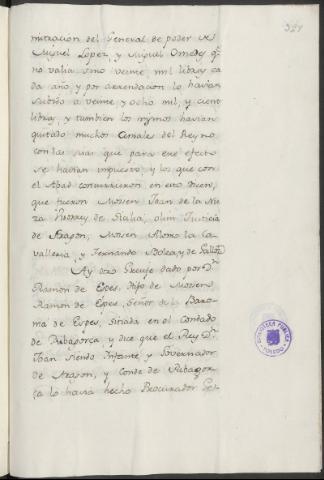 321
mitracion del General de poder de
Miguel Lopez, y Miguel Omedes qe
no valia sino veinte mil libras ca
da año, y por arrendacion lo havian
subido a veinte, y ocho mil, y cient
libras, y tambien los mismos havian
quitado muchos Censales del Reyno
con las sisas que para ese efecto
se havian impuesto, y los que con
el Abad concurrieron en esto bien,
que fueron Mossen Juan de la Nu
za Visorrey de Sicilia, olim Justicia
de Aragon, Mossen Alonso la Ca
valleria, y Fernando Bolea, y de Galloz
Ay otro Greuje dado por Dn
Ramon de Espes, hijo de Mossen
Ramon de Espes, Señor de la Baro
nia de Espes, sitiada en el Condado
de Ribagorza, y dice que el Rey Dn
Juan siendo Infante, y Governador
de Aragon, y Conde de Ribagor
za lo havia hecho Procurador Ge-
BIBLIOTECA PUBLICA
TOLEDO